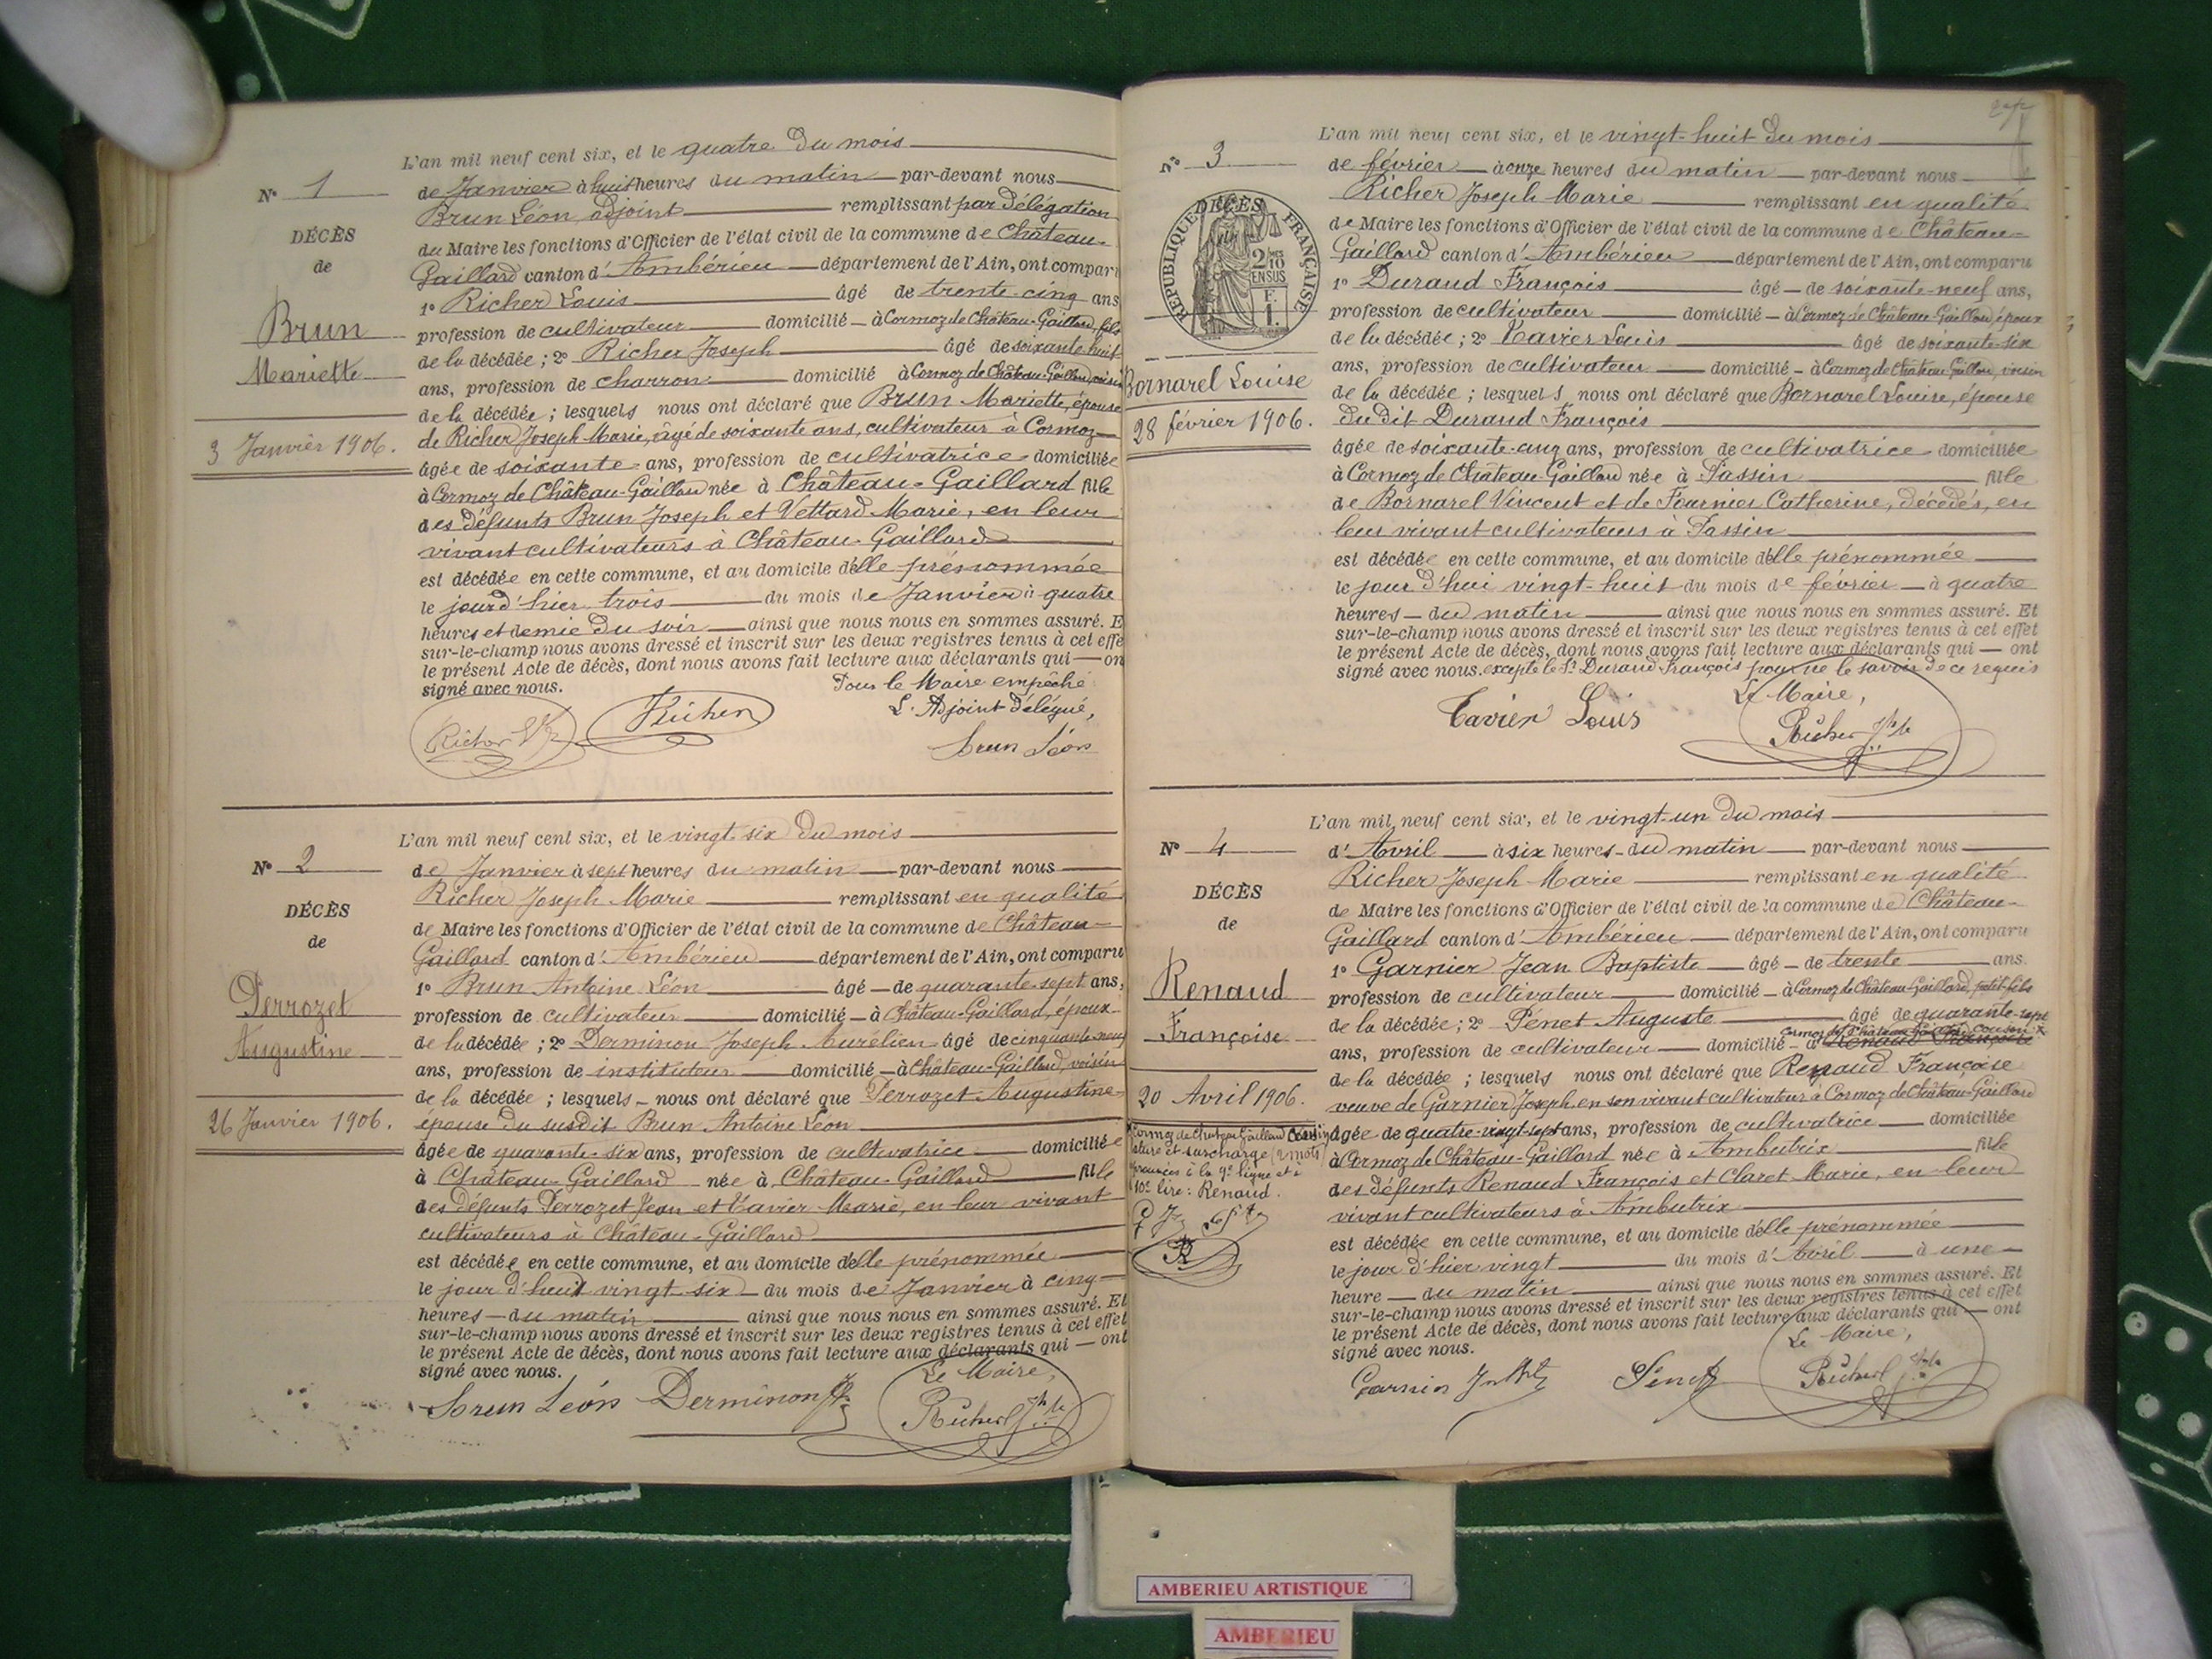 L'an mil neuf cent six, et le quatre du mois
N° 1
de Janvier à huit heures du matin par-devant nous
Brun Léon, adjoint remplissant par délégation
DÉCÈS
du Maire les fonctions d'Officier de l'état civil de la commune de Château-
de
Gaillard canton d'Ambérieu département de l'Ain, ont comparu
1° Richer Louis âgé de trente-cinq ans
Brun
profession de cultivateur domicilié à Cormoz de Château-Gaillard, fils
de la décédée ; 2° Richer Joseph âgé de soixante huit
Mariette
ans, profession de charron domicilié à Cormoz de Château-Gaillard, voisin
de la décédée ; lesquels nous ont déclaré que Brun Mariette, épouse
3 Janvier 1906.
de Richer Joseph Marie, âgé de soixante ans, cultivateur à Cormoz
âgée de soixante ans, profession de cultivatrice domiciliée
à Cormoz de Château-Gaillard née à Château-Gaillard fille
des défunts Brun Joseph et Vettard Marie, en leur
vivant cultivateurs à Château-Gaillard
est décédée en cette commune, et au domicile d'elle prénommée
le jour d'hier trois du mois de Janvier à quatre
heures et demie du soir ainsi que nous nous en sommes assuré. E
sur-le-champ nous avons dressé et inscrit sur les deux registres tenus à cet effe
le présent Acte de décès, dont nous avons fait lecture aux déclarants qui on
signé avec nous.
Pour le Maire empêché
L'Adjoint délégué,
Richer
Richer
Brun Léon
L'an mil neuf cent six, et le vingt six du mois
N° 2
de Janvier à sept heures du matin par-devant nous
Richer Joseph Marie remplissant en qualité
DÉCÈS
de Maire les fonctions d'Officier de l'état civil de la commune de Château-
de
Gaillard canton d'Ambérieu département de l'Ain, ont comparu
1° Brun Antoine Léon âgé de quarante sept ans,
Perrozet
profession de cultivateur domicilié à Château-Gaillard, époux
de la décédée ; 2° Derminon Joseph Aurélien âgé de cinquante-neuf
Augustine
ans, profession de instituteur domicilié à Château-Gaillard, voisin
de la décédée ; lesquels nous ont déclaré que Perrozet Augustine
26 Janvier 1906.
épouse du susdit Brun Antoine Léon
âgée de quarante-six ans, profession de cultivatrice domiciliée
à Château-Gaillard née à Château-Gaillard fille
des défunts Perrozet Jean et Tavier Marie, en leur vivant
cultivateurs à Château-Gaillard
est décédée en cette commune, et au domicile d'elle prénommée
le jour d'hui vingt six du mois de Janvier à cinq
heures du matin ainsi que nous nous en sommes assuré. Et
sur-le-champ nous avons dressé et inscrit sur les deux registres tenus à cet effet
le présent Acte de décès, dont nous avons fait lecture aux déclarants qui ont
signé avec nous.
Le Maire,
Brun Léon
Derminon
Richer
L'an mil neuf cent six, et le vingt-huit du mois
N° 3
de février à onze heures du matin par-devant nous
Richer Joseph Marie remplissant en qualité
DÉCÈS
RÉPUBLIQUE FRANÇAISE
2/10 EN SUS
F. 1.
de Maire les fonctions d'Officier de l'état civil de la commune de Château-
Gaillard canton d'Ambérieu département de l'Ain, ont comparu
1° Durand François âgé de soixante-neuf ans,
profession de cultivateur domicilié à Cormoz de Château-Gaillard, époux
de la décédée ; 2° Tavier Louis âgé de soixante-six
ans, profession de cultivateur domicilié à Cormoz de Château-Gaillard, voisin
Bornarel Louise
de la décédée ; lesquels nous ont déclaré que Bornarel Louise, épouse
28 février 1906.
du dit Durand François
âgée de soixante-cinq ans, profession de cultivatrice domiciliée
à Cormoz de Château-Gaillard née à Passin fille
de Bornarel Vincent et de Fournier Catherine, décédés, en
leur vivant cultivateurs à Passin
est décédée en cette commune, et au domicile d'elle prénommée
le jour d'hui vingt-huit du mois de février à quatre
heures du matin ainsi que nous nous en sommes assuré. Et
sur-le-champ nous avons dressé et inscrit sur les deux registres tenus à cet effet
le présent Acte de décès, dont nous avons fait lecture aux déclarants qui ont
signé avec nous. excepté le Sr Durand François pour ne le savoir de ce requis
Le Maire,
Tavier Louis
Richer
L'an mil neuf cent six, et le vingt-un du mois
N° 4
d'Avril à six heures du matin par-devant nous
Richer Joseph Marie remplissant en qualité
DÉCÈS
de Maire les fonctions d'Officier de l'état civil de la commune de Château-
de
Gaillard canton d'Ambérieu département de l'Ain, ont comparu
1° Garnier Jean Baptiste âgé de trente ans.
Renaud
profession de cultivateur domicilié à Cormoz de Château-Gaillard, petit-fils
de la décédée ; 2° Pénet Auguste âgé de quarante-sept
Françoise
Cormoz de Château Gaillard cousin
ans, profession de cultivateur domicilié à Renaud Françoise
de la décédée ; lesquels nous ont déclaré que Renaud Françoise
20 Avril 1906.
veuve de Garnier Joseph, en son vivant cultivateur à Cormoz de Château-Gaillard
âgée de quatre-vingt-sept ans, profession de cultivatrice domiciliée
à Cormoz de Château-Gaillard née à Ambutrix fille
des défunts Renaud François et Claret Marie, en leur
vivant cultivateurs à Ambutrix
est décédée en cette commune, et au domicile d'elle prénommée
le jour d'hier vingt du mois d'Avril à une
heure du matin ainsi que nous nous en sommes assuré. Et
sur-le-champ nous avons dressé et inscrit sur les deux registres tenus à cet effet
le présent Acte de décès, dont nous avons fait lecture aux déclarants qui ont
signé avec nous.
Cormoz de Château Gaillard Cousin
rature et surcharge (2 mots)
à la 9e ligne et à
10e lire : Renaud.
R
Le Maire,
Garnier
Pénet
Richer
AMBERIEU ARTISTIQUE
AMBERIEU